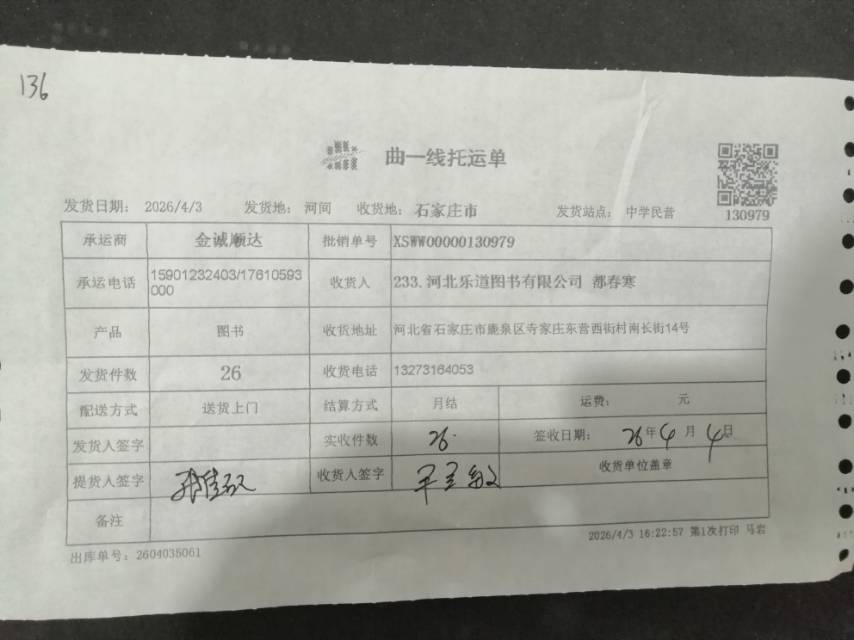 136
曲一线托运单
发货日期： 2026/4/3 发货地： 河间 收货地： 石家庄市 发货站点： 中学民营
130979
承运商 金诚顺达 批销单号 XSWW00000130979
承运电话 15901232403/17610593000 收货人 233.河北乐道图书有限公司 都春寒
产品 图书 收货地址 河北省石家庄市鹿泉区寺家庄东营西街村南长街14号
发货件数 26 收货电话 13273164053
配送方式 送货上门 结算方式 月结 运费： 元
发货人签字 实收件数 26. 签收日期： 26年4月4日
提货人签字 收货人签字 收货单位盖章
备注
出库单号：2604035061 2026/4/3 16:22:57 第1次打印 马岩